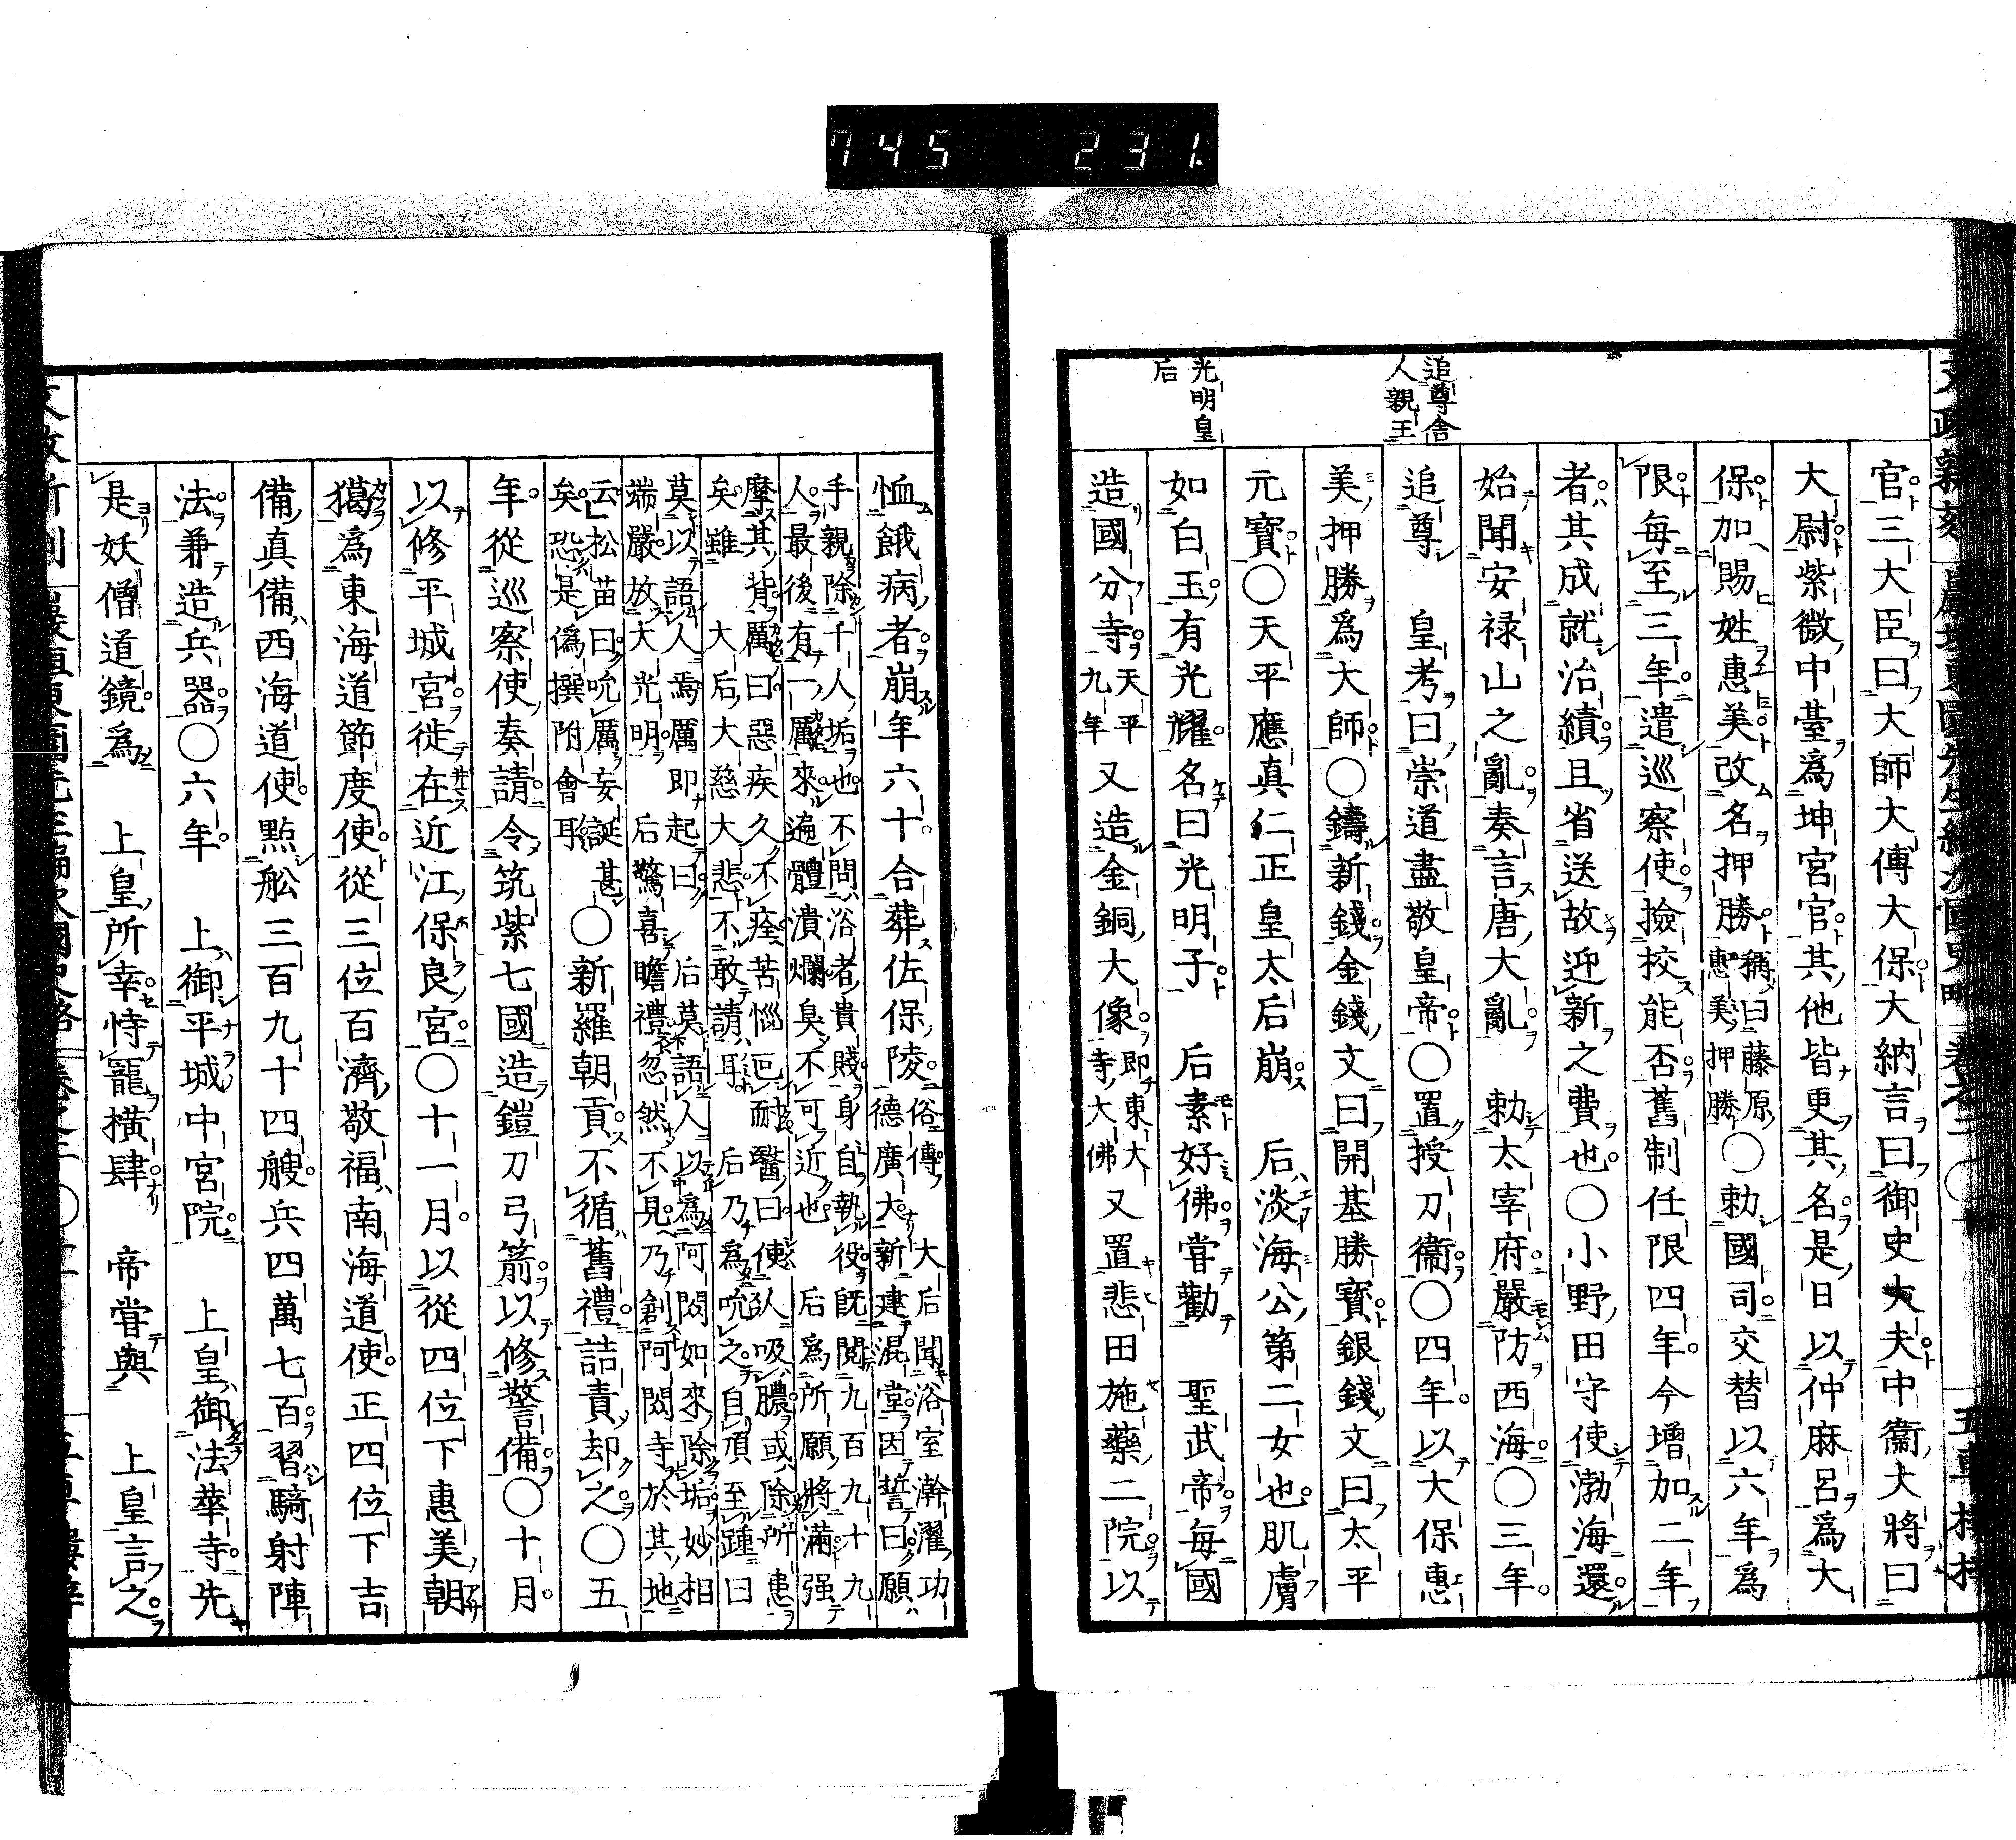 745 231.
官三大臣曰大師大傅大保大納言曰御史大夫中衞大將曰
大尉紫微中臺爲坤宮官其他皆更其名是日以仲麻呂爲大
保加賜姓惠美改名押勝稱曰藤原惠美押勝〇勅國司交替以六年爲
限每至三年遣巡察使撿挍能否舊制任限四年今增加二年
者其成就治績且省送故迎新之費也〇小野田守使渤海還
始聞安禄山之亂奏言唐大亂 勅太宰府嚴防西海〇三年
追尊 皇考曰崇道盡敬皇帝〇置授刀衞〇四年以大保惠
美押勝爲大師〇鑄新錢金錢文曰開基勝寶銀錢文曰太平
元寶〇天平應真仁正皇太后崩 后淡海公第二女也肌膚
如白玉有光耀名曰光明子 后素好佛嘗勸 聖武帝每國
造國分寺天平九年又造金銅大像即東大寺大佛又置悲田施藥二院以
追尊舍人親王
光明皇后
恤餓病者崩年六十合葬佐保陵俗傳 大后聞浴室澣濯功德廣大新建混堂因誓曰願
手親除千人垢也不問浴者貴賤身自執役既閲九百九十九人最後有一厲來遍體潰爛臭不可近也 后爲所願將滿强
摩其背厲曰惡疾久不痊苦惱叵耐醫曰使人吸膿或除所患矣雖 大后大慈大悲不敢請耳 后乃爲吮之自頂至踵曰
莫以語人焉厲即起曰 后莫語人以爲阿閦如來除垢妙相端嚴放大光明 后驚喜瞻禮忽然不見乃創阿閦寺於其地
云松苗曰吮厲妄誕甚矣恐是僞撰附會耳〇新羅朝貢不循舊禮詰責却之〇五
年從巡察使奏請令筑紫七國造鎧刀弓箭以修警備〇十月
以修平城宮徙在近江保良宮〇十一月以從四位下惠美朝
獦爲東海道節度使從三位百濟敬福南海道使正四位下吉
備真備西海道使點舩三百九十四艘兵四萬七百習騎射陣
法兼造兵器〇六年 上御平城中宮院 上皇御法華寺先
是妖僧道鏡爲 上皇所幸恃寵橫肆 帝嘗與 上皇言之